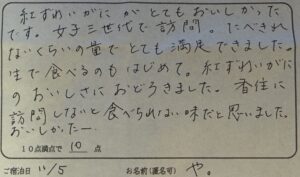 紅ずわいがに が とてもおいしかった
です。女子三世代で訪問。たべきれ
ないくらいの量でとても満足できました。
生で食べるのもはじめて。紅ずわいがに
のおいしさにおどろきました。香住に
訪問しないと食べられない味だと思いました。
おいしかたー
10点満点で 10 点
ご宿泊日 11/5 お名前(匿名可) や。